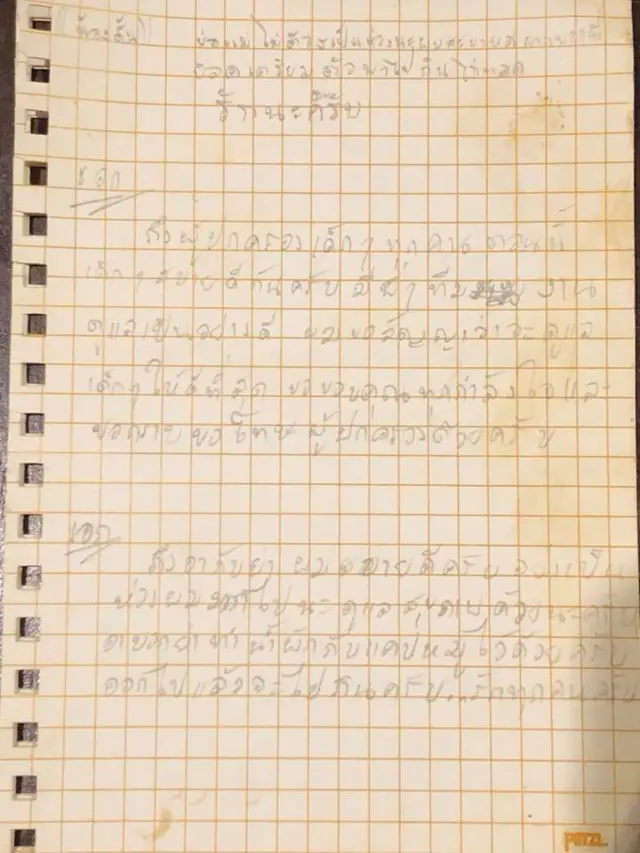 (น้องตั้น) พ่อแม่ ไม่ต้องเป็นห่วงนะผมสบายดี
ยอดเตรียมตัวพาไปกินไก่ทอด
รักนะครับ
โค้ชเอก
ถึงผู้ปกครองเด็กๆ ทุกคน ตอนนี้
เด็กๆ สบายดีกันครับ มีพี่ๆ ทีม งาน
ดูแลเป็นอย่างดี ผมขอสัญญาว่าจะดูแล
เด็กๆ ให้ดีที่สุด ขอขอบคุณทุกกำลังใจและ
ขอกราบขอโทษผู้ปกครองด้วยครับ
เอก
ถึงอากับย่า ผมสบายดีครับ อย่าเป็น
ห่วงผม ไปนะ ดูแลสุขภาพด้วยนะครับ
ย่าทำน้ำผักกับแคปหมูไว้ด้วยครับ
ออกไปแล้วจะไปกินครับ..รักทุกคนครับ
PETZL